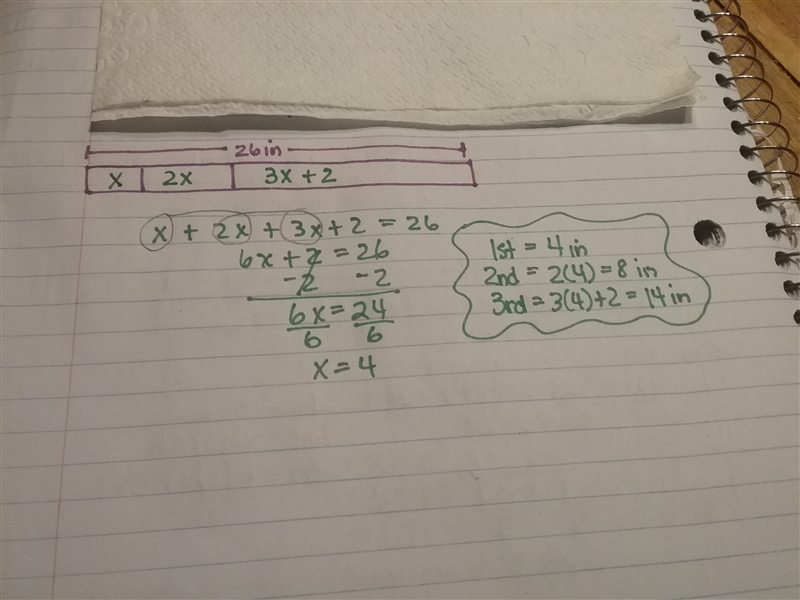 26in
x 2x 3x + 2
x + 2x + 3x + 2 = 26
6x + 2 = 26
-2 -2
6x = 24
6 6
x = 4
1st = 4 in
2nd = 2(4) = 8 in
3rd = 3(4) + 2 = 14 in